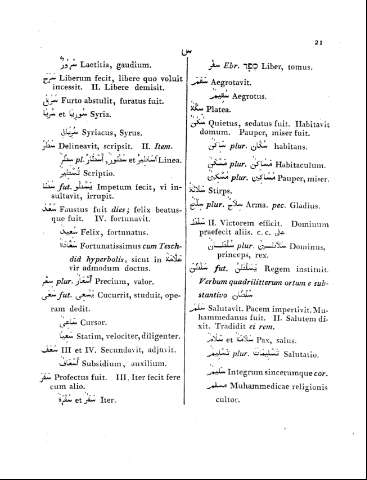 21
س
سُرُورٌ Laetitia, gaudium.
سَرَحَ Liberum fecit, libere quo voluit
incessit. II. Libere demisit.
سَرَقَ Furto abstulit, furatus fuit.
سُورِيَا et سُرْيَا Syria.
سُرْيَانِ Syriacus, Syrus.
سَطَرَ Delineavit, scripsit. II. Item.
سَطْرٌ pl. أَسْطَارٌ, سُطُورٌ et أَسَاطِيرُ Linea.
تَسْطِيرٌ Scriptio.
سَطَا fut. يَسْطُو Impetum fecit, vi in-
suitavit, irrupit.
سَعَدَ Faustus fuit dies; felix beatus-
que fuit. IV. fortunavit.
سَعِيدٌ Felix, fortunatus.
Fortunatissimus cum Tesch-
did hyperbolis, sicut in عَلَّامَةٌ
vir admodum doctus.
سِعْرٌ plur. أَسْعَارٌ Precium, valor.
سَعَى fut. يَسْعَى Cucurrit, studuit, ope-
ram dedit.
سَاعِي Cursor.
Statim, velociter, diligenter.
سَعَفَ III et IV. Secundavit, adjuvit.
Subsidium, auxilium.
سَفَرَ Profectus fuit. III. Iter fecit fere
cum alio.
سَفَرٌ et سَفْرَةٌ Iter.
سِفْرٌ Ebr. ספר Liber, tomus.
سَقِمَ Aegrotavit.
سَقِيمٌ Aegrotus.
سِكَّةٌ Platea.
سَكَنَ Quietus, sedatus fuit. Habitavit
domum. Pauper, miser fuit.
سَاكِنٌ plur. سُكَّانٌ habitans.
مَسْكَنٌ plur. مَسَاكِنُ Habitaculum.
مِسْكِينٌ plur. مَسَاكِينُ Pauper, miser.
سُلَالَةٌ Stirps.
سِلَاحٌ plur. Arma. pec. Gladius.
سَلَطَ II. Victorem effecit. Dominum
praefecit aliis. c. c. عَلَى
سُلْطَانٌ plur. سَلَاطِينُ Dominus,
princeps, rex.
سَلْطَنَ fut. يُسَلْطِنُ Regem instituit.
Verbum quadriliterum ortum e sub-
stantivo سُلْطَانٌ
سَلَّمَ Salutavit. Pacem impertivit. Mu-
hammedanus fuit. II. Salutem di-
xit. Tradidit et rem.
سَلَامٌ et سَلَامَةٌ Pax, salus.
تَسْلِيمٌ plur. تَسْلِيمَاتٌ Salutatio.
سَلِيمٌ Integrum sincerumque cor.
مُسْلِمٌ Muhammedicae religionis
cultor.